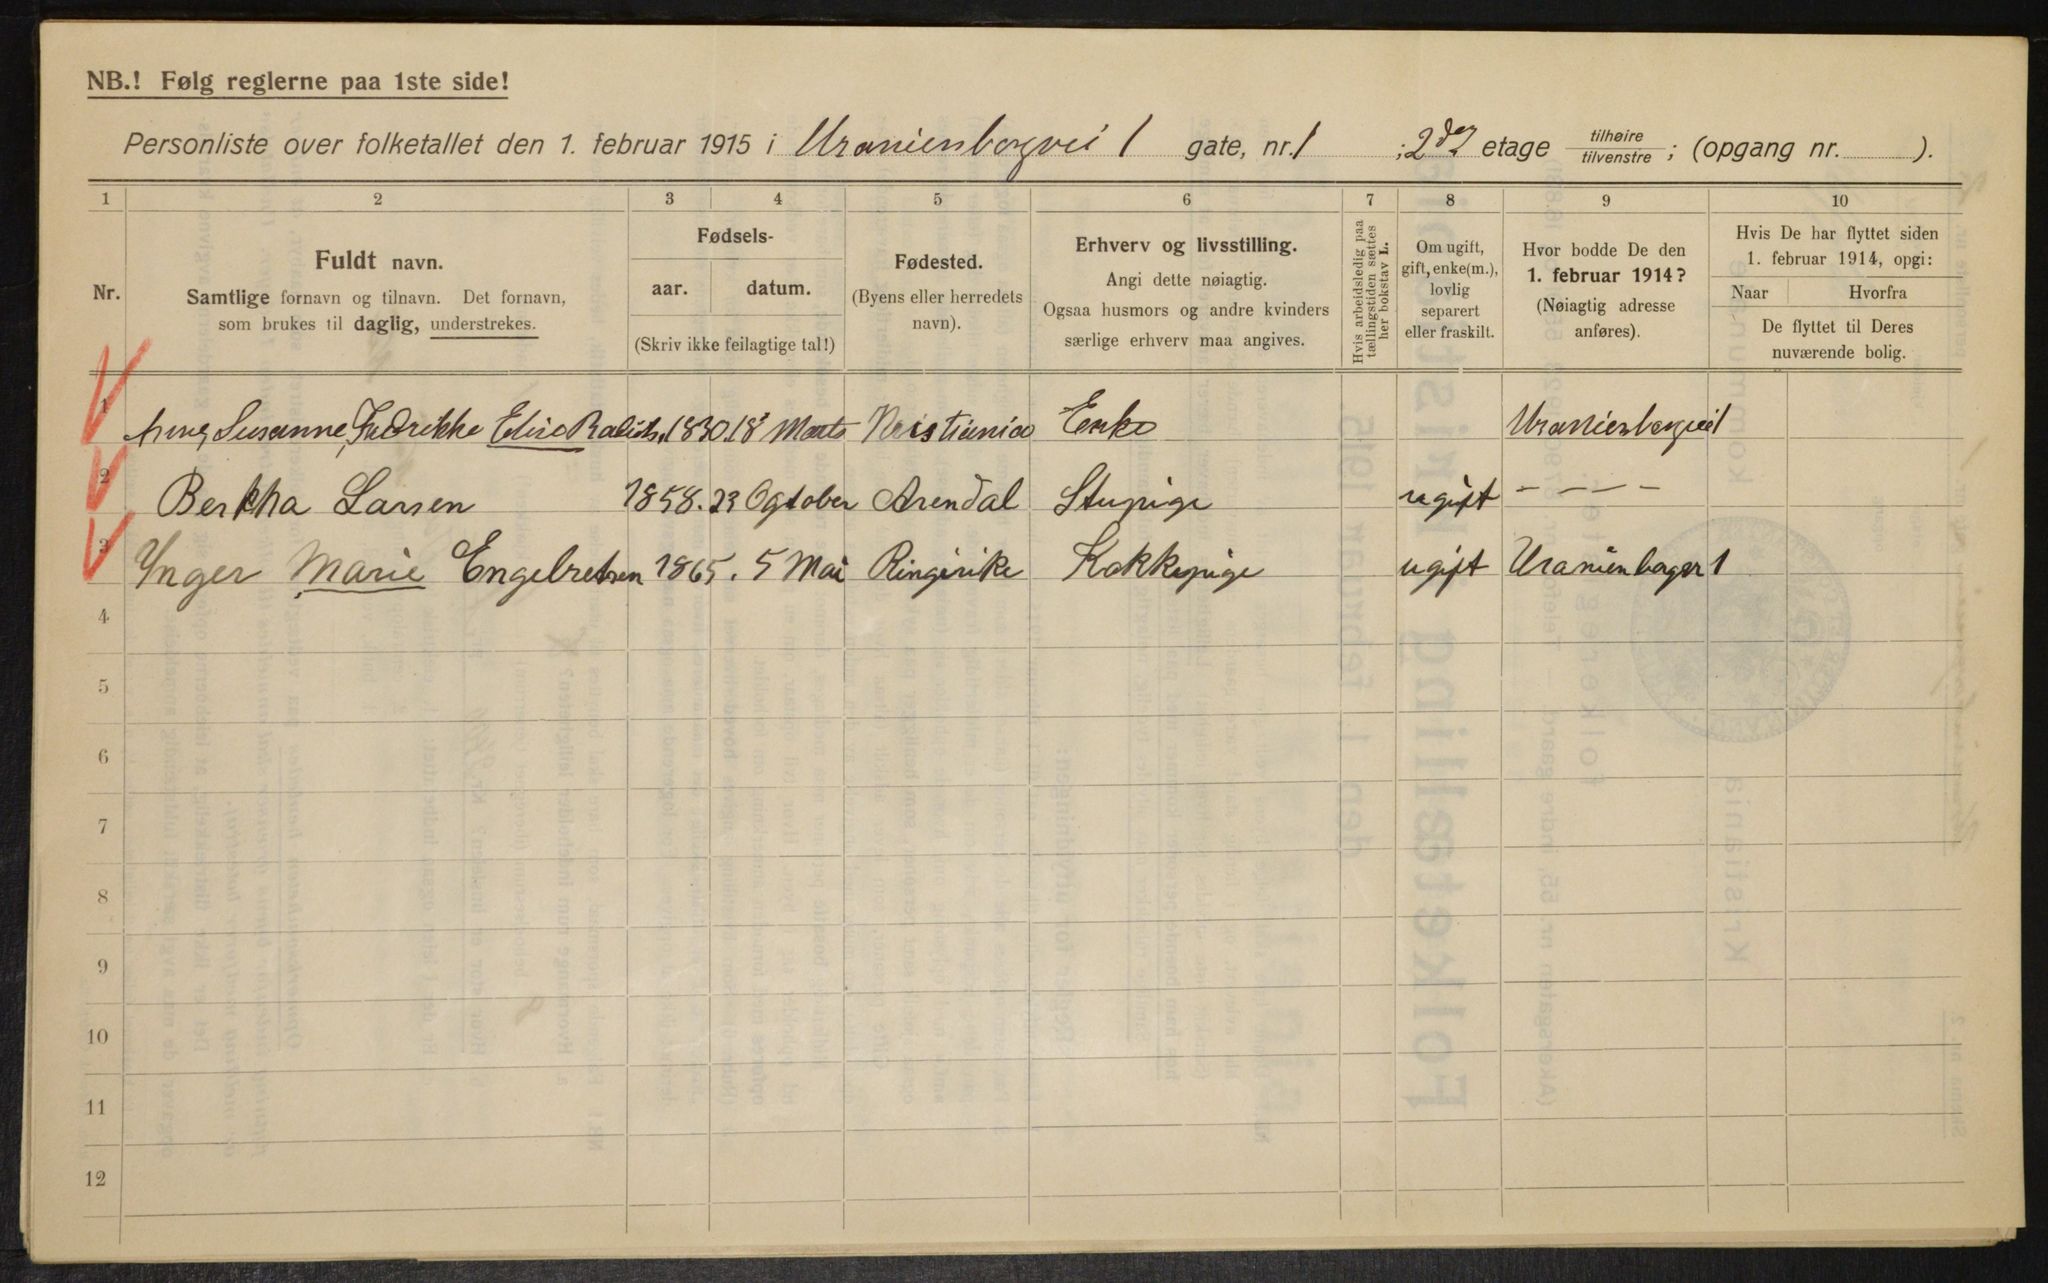 NB.! Følg reglerne paa 1ste side!
Personliste over folketallet den 1. februar 1915 i Uranienborgvei 1 gate, nr. 1 ; 2den etage tilhøire / tilvenstre ; (opgang nr. ).
1 2 3 4 5 6 7 8 9 10
Nr.
Fuldt navn.
Samtlige fornavn og tilnavn. Det fornavn,
som brukes til daglig, understrekes.
Fødsels-
aar. datum.
(Skriv ikke feilagtige tal!)
Fødested.
(Byens eller herredets
navn).
Erhverv og livsstilling.
Angi dette nøiagtig.
Ogsaa husmors og andre kvinders
særlige erhverv maa angives.
Hvis arbeidsledig paa
tællingstiden sættes
her bokstav L.
Om ugift,
gift, enke(m.),
lovlig
separert
eller fraskilt.
Hvor bodde De den
1. februar 1914?
(Nøiagtig adresse
anføres).
Hvis De har flyttet siden
1. februar 1914, opgi:
Naar Hvorfra
De flyttet til Deres
nuværende bolig.
1 Susanne Fredrikke Elise 1830 18 Marts Kristiania Enke Uranienborgvei 1
2 Bertha Larsen 1858. 23 Ogtober Arendal Stupige ugift - - - -
3 Ynger Marie Engelretsen 1865. 5 Mai Ringirike Kokkepige ugift Uranienborger 1
4
5
6
7
8
9
10
11
12